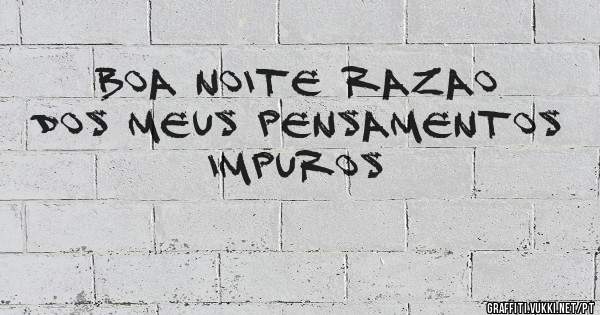 BOA NOITE RAZAO
DOS MEUS PENSAMENTOS
IMPUROS
GRAFFITI.YUKKI.NET/PT